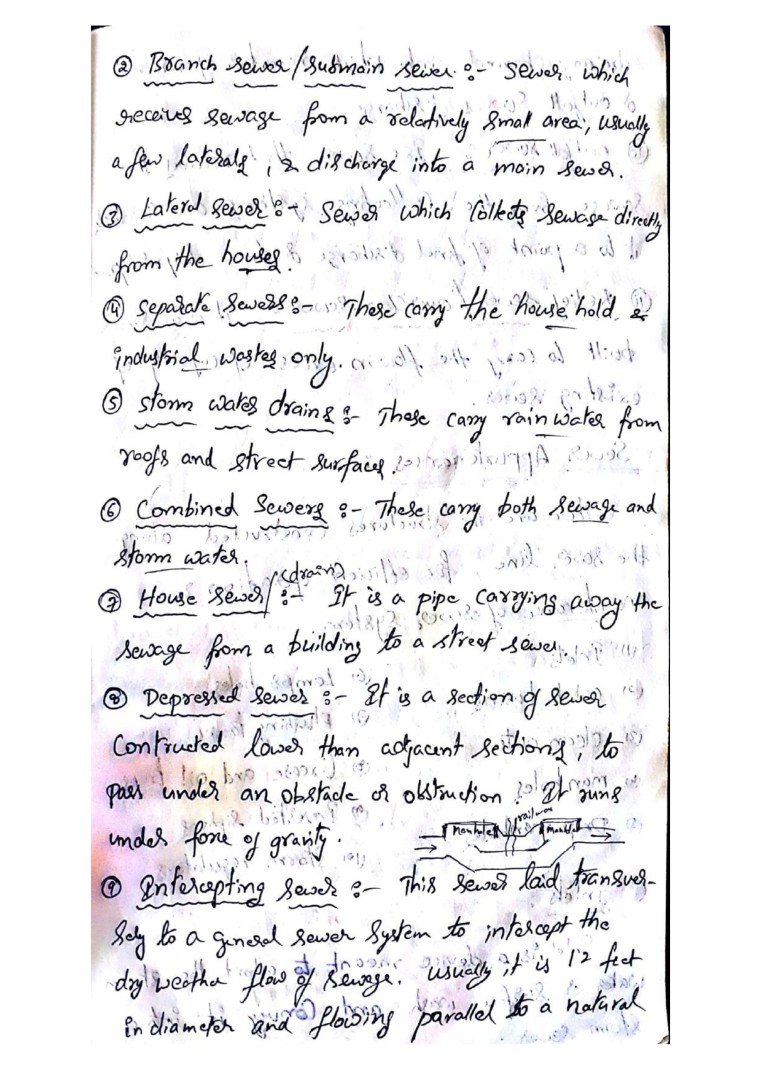 ② Branch sewer/submain sewer :- Sewer which
receives sewage from a relatively small area, usually
a few laterals, & discharge into a main sewer.
③ Lateral sewer :- Sewer which Collects sewage directly
from the houses.
④ separate sewers :- These carry the house hold &
industrial wastes only.
⑤ storm water drains :- These carry rain water from
roofs and street surfaces.
⑥ Combined Sewers :- These carry both sewage and
storm water.
⑦ House sewer/(drain) :- It is a pipe carrying away the
sewage from a building to a street sewer.
⑧ Depressed sewer :- It is a section of sewer
Contructed lower than adjacent sections, to
pass under an obstacle or obstruction. It runs
under force of gravity.
railway
Manhole Manhole
⑨ Intercepting sewer :- This sewer laid transver-
sely to a general sewer system to intercept the
dry weather flow of sewage. Usually, it is 12 feet
in diameter and flowing parallel to a natural